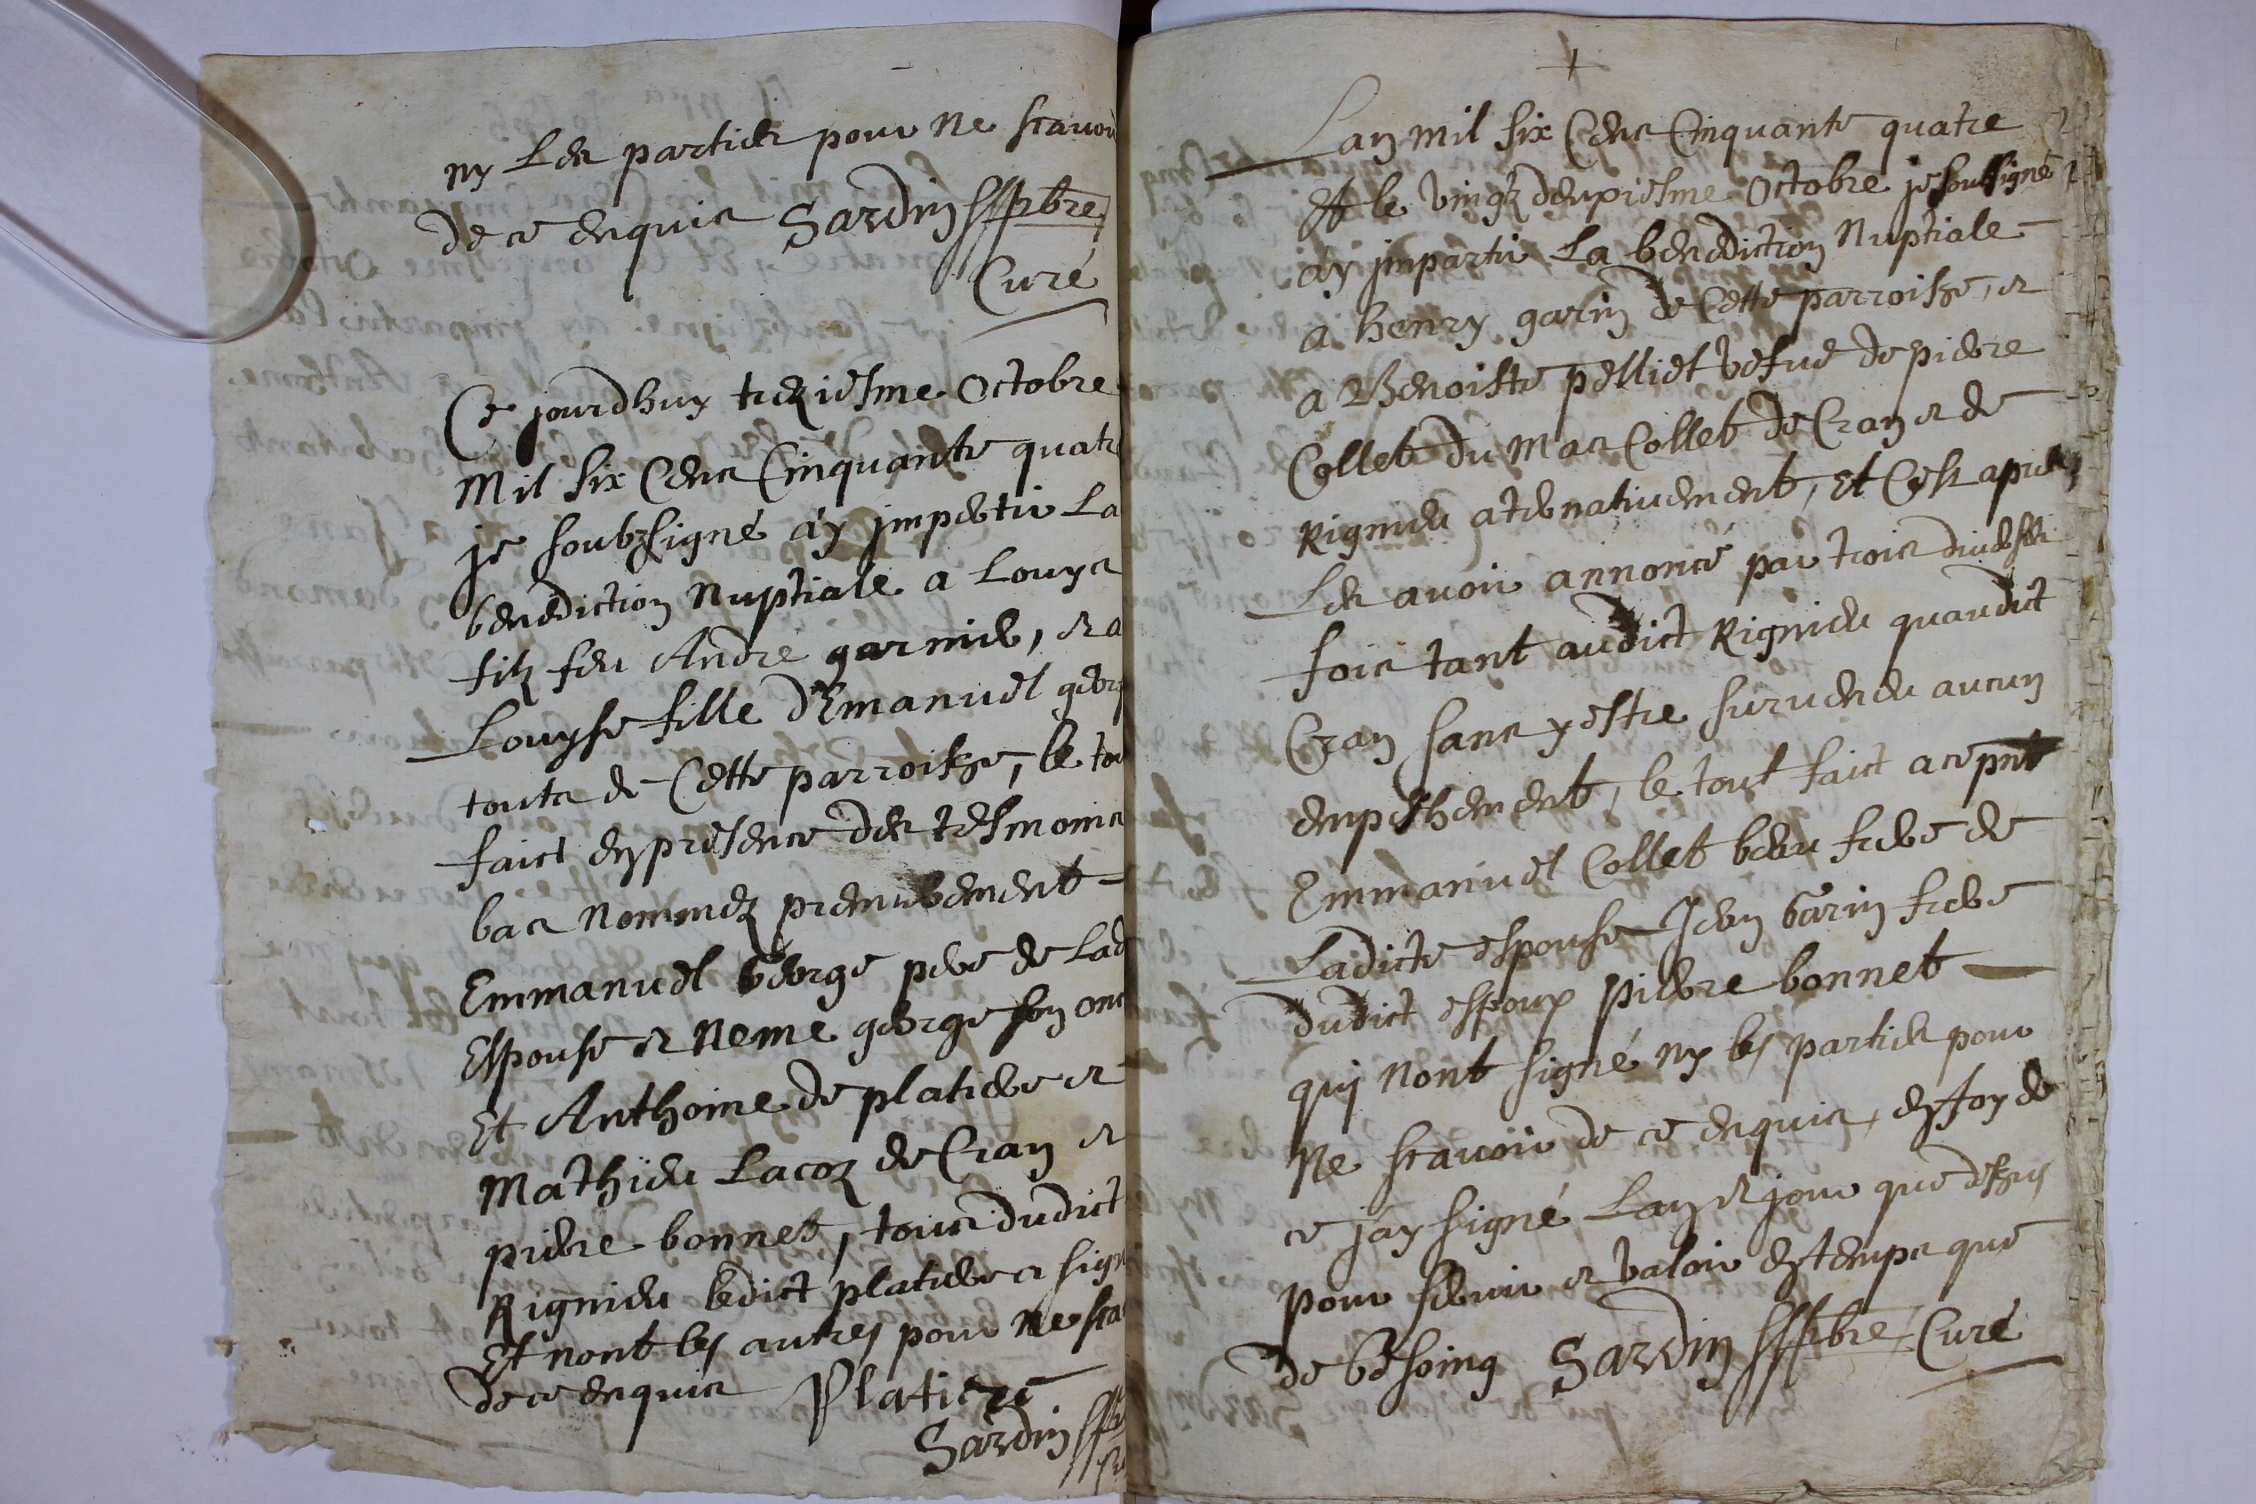 ny Les parties pour ne scauoir
de ce enquis Sardin ptbre
Curé
Ce jourdhuy treziesme Octobre
Mil six Cens Cinquante quatre
je soubzsigné ay imperti La
benediction Nuptiale a Louys
filz feu Andre garnier, et a
Louyse fille d'Emanuel george
touts de Cette parroisse, le tout
faict en presence des tesmoins
bas nommez premierement
Emmanuel George pere de Lad
Espouse et Neme george son oncle
Et Anthoine de platiere et
Mathieu Lacoz de Cran et
pierre bonnet, tous dudict
Rignieu ledict platiere a signé
Et nont les autres pour ne sca
de ce enquis Platiere
Sardin
+
Lan mil six Cens Cinquante quatre
Et le vingt deuxiesme Octobre je soubsigné
ay imparti La benediction Nuptiale
a henry garin de Cette parroisse, et
a Benoiste pelliet vefue de pierre
Collet du Mas Collet de Cran et de
Rignieu aternatiuement, Et C'est apres
Les auoir annoncé par trois diuerses
fois tant audict Rignieu quaudict
Cran sans y estre surueneu aucun
empeschement, le tout faict a ce pnt
Emmanuel Collet beau frere de
Ladicte espouse Jean Garin frere
dudict espoux pierre bonnet
qui nont signé ny les parties pour
Ne scauoir de ce enquis, en foy de
ce jay signé Lan et jour que dessus
pour seruir et valoir en temps que
de besoing Sardin ptbre Curé